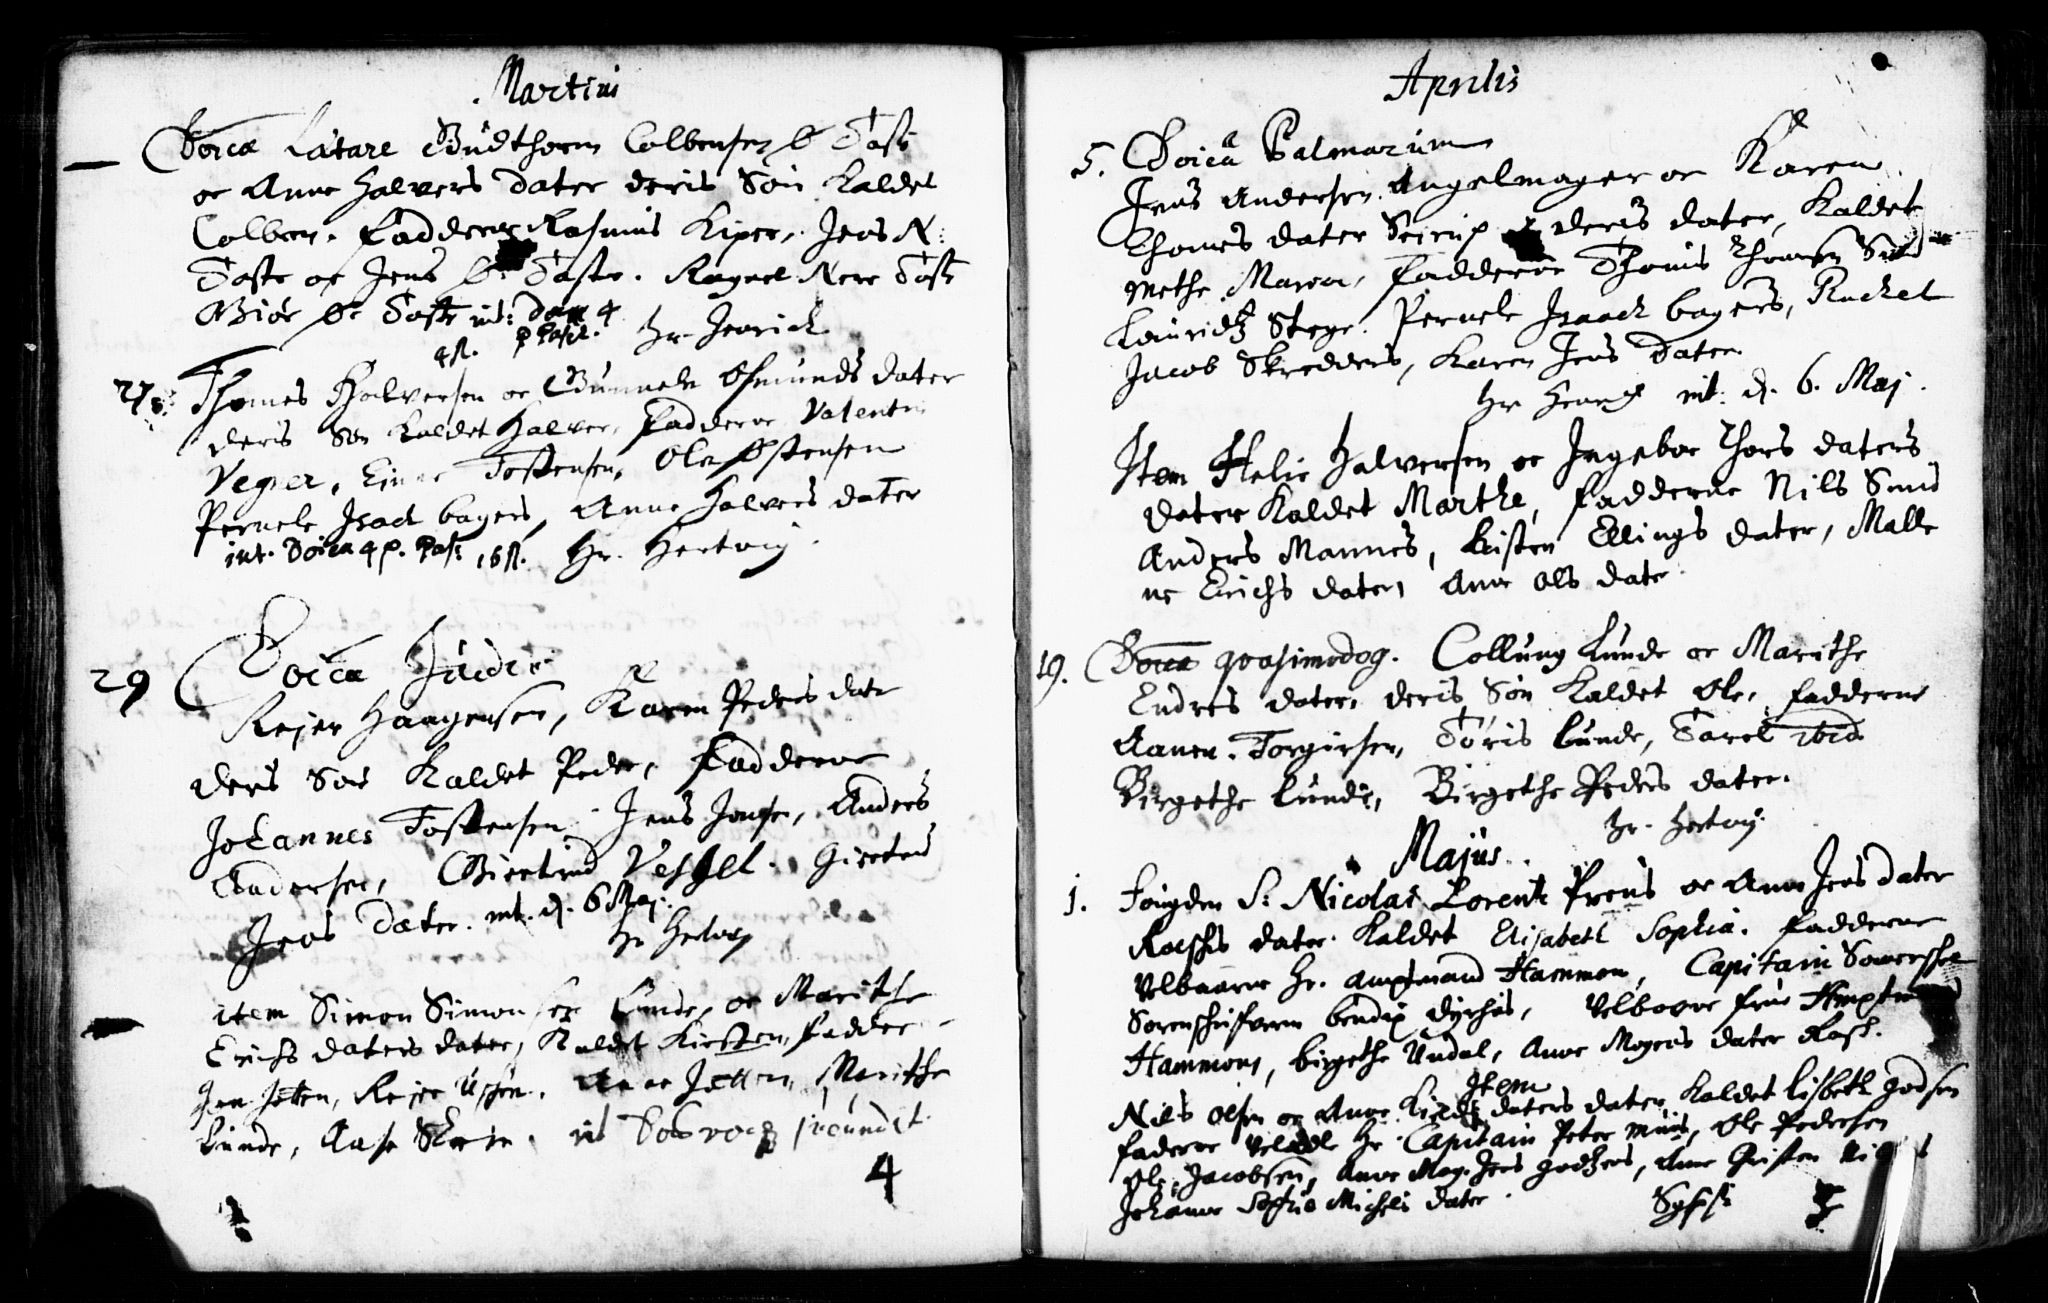 Martini
Doica Lætare Gudthorm Colbensen Ø Tost
oc Anne Halvers dater deris Søn kaldet
Colben. Fadderne Rasmus Kiper, Jens N:
Toste oc Jens Ø: Toste. Ragnel Nere Tost
Giør Ø: Toste int: Dom 4
4 ß. p Pasch. Hr. Henrich
27. Thomes Halversen oc Gunnele Osmunds dater
deris Søn kaldet Halver, Fadderne Valentin
Vegner, Einer Tostensen, Ole Østensen
Pernele Isach bagers, Anne Halvers dater
int. Doica 4 p. Pas: 16 ß. Hr. Hertvig.
29 Doica Judic
Rejer Haagensen, Karen Peders dater
deris Søn kaldet Peder, Fadderne
Johannes Tostensen Jens Jensen, Anders
Andersen, Giertrud Vessel. Giertrud
Jens dater. int. d. 6 Maj.
Hr Hertvig
item Simon Simonsen Lunde, oc Marithe
Erichs daters dater, kaldet Kirsten, Fadder
Jon Jetten, Rejer Ussen, Anne Jetten, Marithe
Lunde, Aase
4
Aprilis
5. Doica Palmarum
Jens Andersen Angelmager oc Karen
Thomes dater Seirup deris dater, kaldet
Methe Maria, Fadderne Thomis Thomsen Smed
Lauridtz Stege. Pernele Isaach bagers, Ruchel
Jacob Skredders, Karen Jens dater
Hr Henrich int: d. 6. Maj.
Item Helie Halversen oc Ingebor Thors daters
dater kaldet Marthe, Fadderne Nils Smid
Anders Mannes, Kisten Ellings dater, Malle
ne Erichs dater, Anne Ols dater
19. Doica qvasimodog. Collung Lunde oc Marithe
Endres dater, deris Søn kaldet Ole, Fadderne
Aanen Torgirsen, Tøris Lunde, Tarel ibid
Birgethe Lunde, Birgethe Peders dater.
Hr. Hertvig.
Majus.
1. Fougden S: Nicolai Lorentz Preus oc Anne Jens dater
Raschs dater kaldet Elisabeth Sophia. Fadderne
Velbaarne Hr. Amptmand Hammon, Capitain
Sorenschrifveren bendix Dyrhus, Velbaarne frue Amptmand
Hammons, birgethe Undal, Anne Mogens dater Rasch.
Item
Nils Olsen oc Anne daters dater kaldet Lisbeth Godsen
faderne Veledle Hr. Capitain Peter Munis, Ole Pedersen
Ole Jacobsen, Anne Mag. Jens Godzens, Anne Gristen
Johanne Sophie Michels dater.